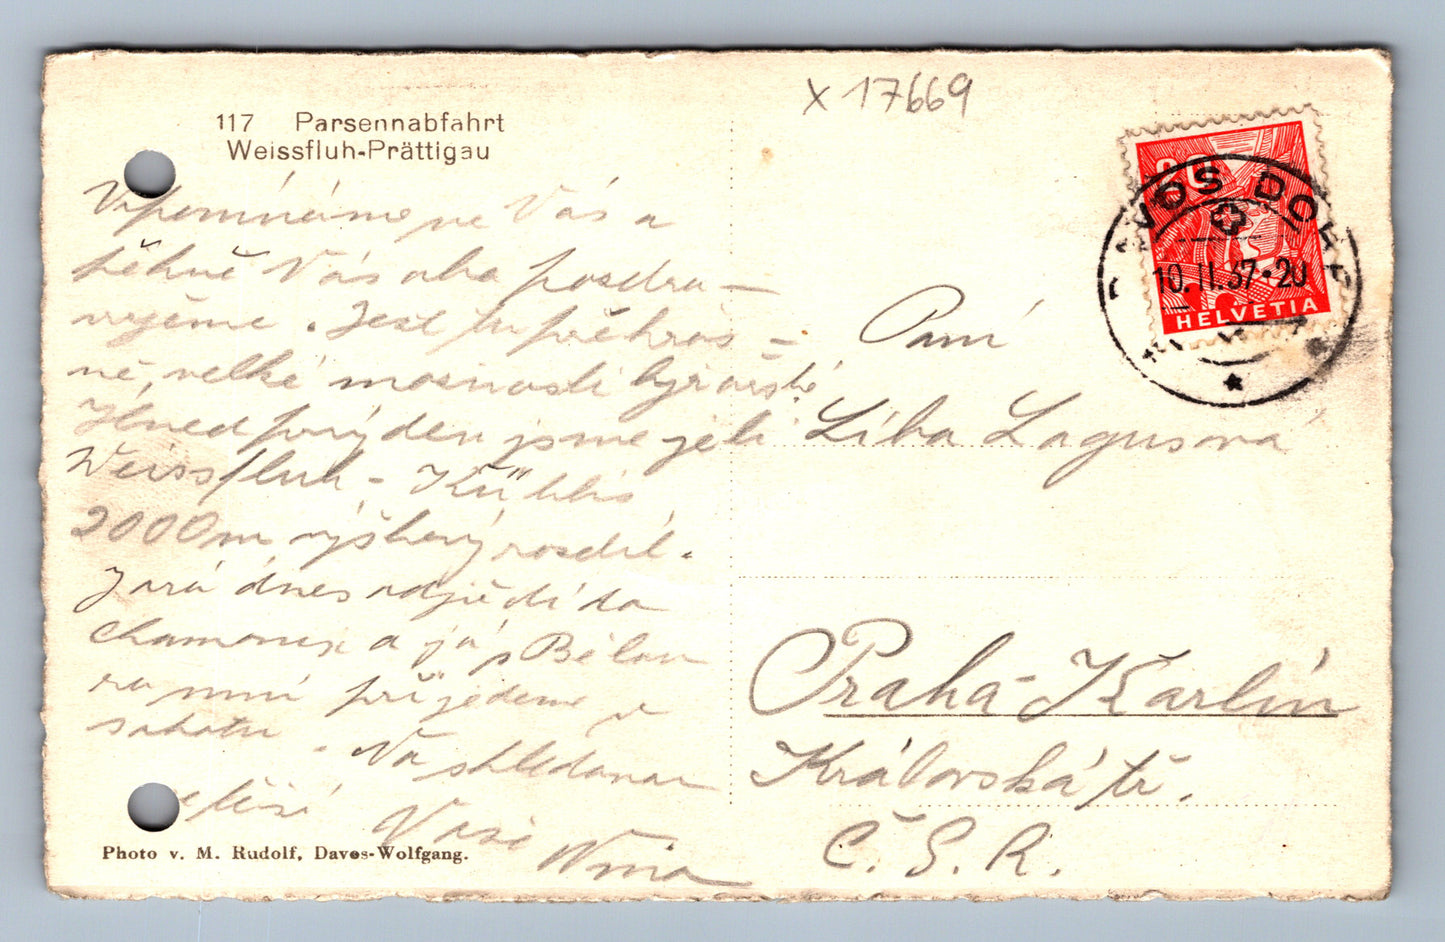 117 Parsennabfahrt
Weissfluh-Prättigau
X 17669
20
DAVOS DORF
10.II.37-20
HELVETIA
Vzpomínáme na Vás a
pěkně Vás oba pozdra-
vujeme. Jest tu překrás-
ně, velké možnosti lyžařské.
Hned prvý den jsme jeli
Weissfluh - Küblis
2000 m výškový rozdíl.
Jará dnes odjíždí do
Chamonix a já s Bělou
přijedeme v
sobotu. Na shledanou
se těší
Vaše
Nina
Photo v. M. Rudolf, Davos-Wolfgang.
Paní
Líba Lagusová
Praha-Karlín
Královská tř.
Č.S.R.